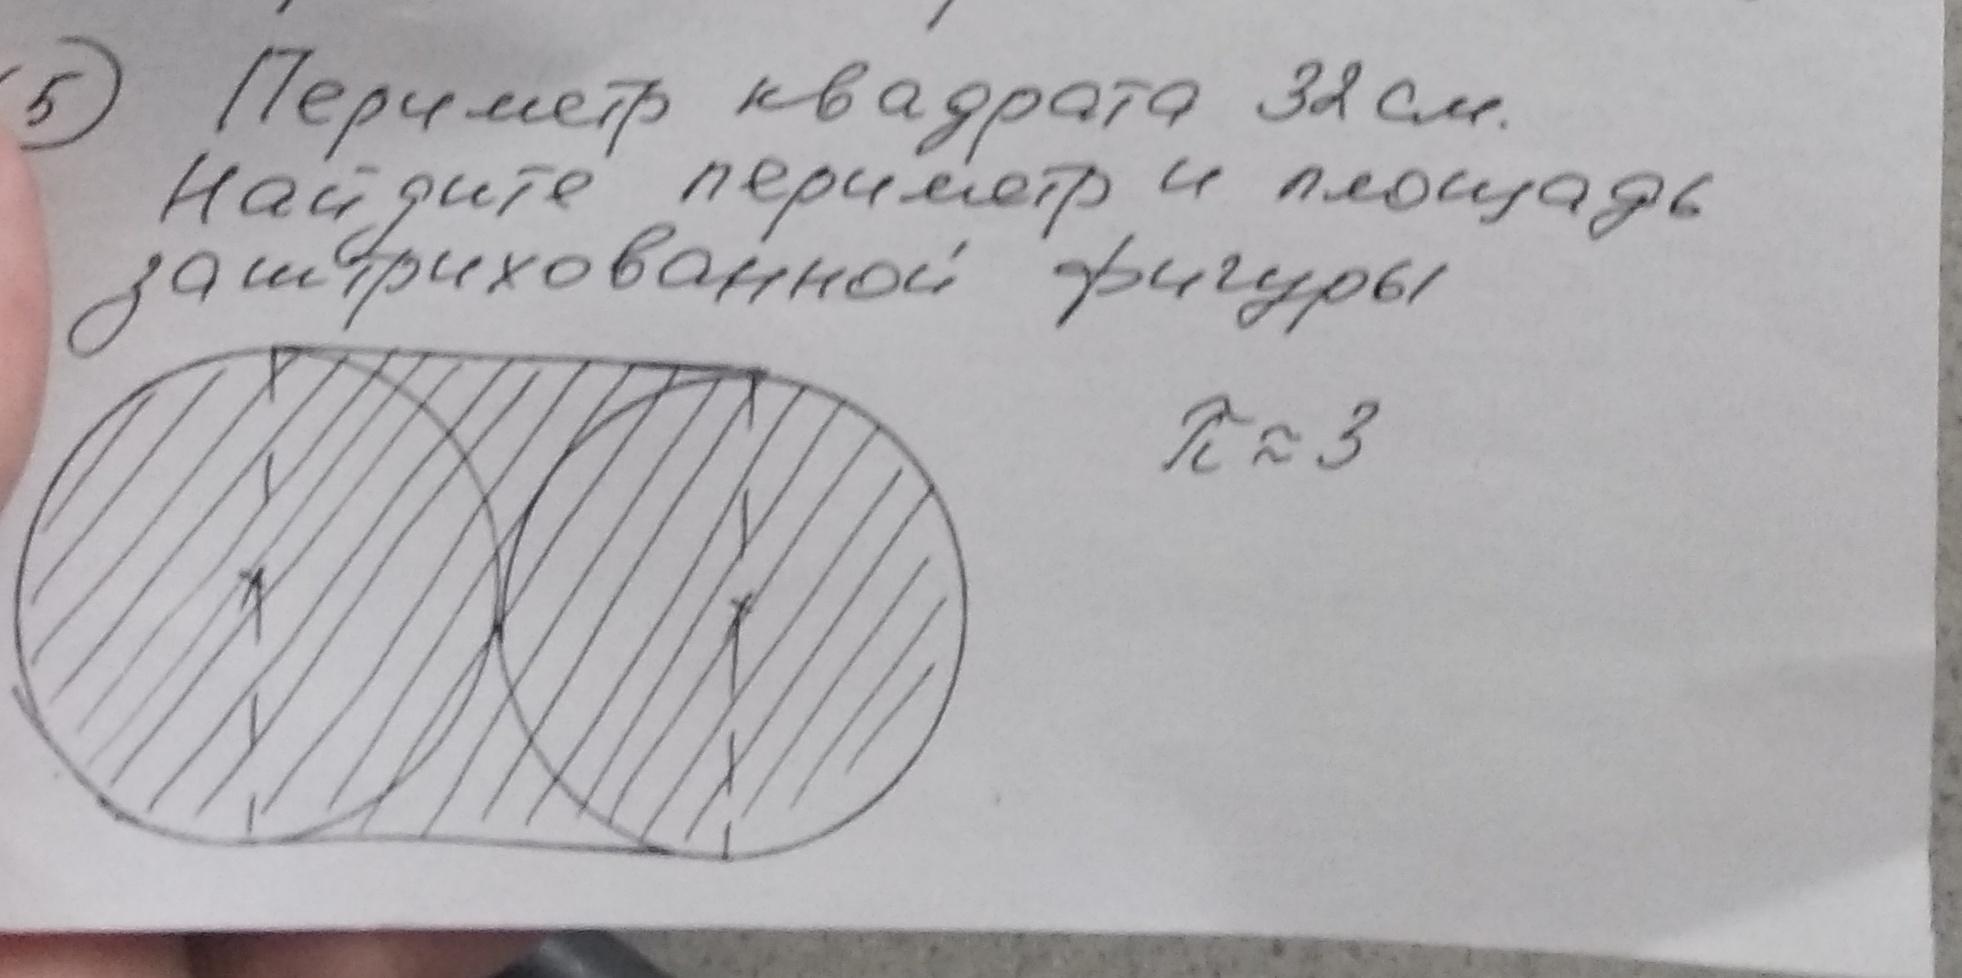 5) Периметр квадрата 32 см.
Найдите периметр и площадь
заштрихованной фигуры
π ≈ 3